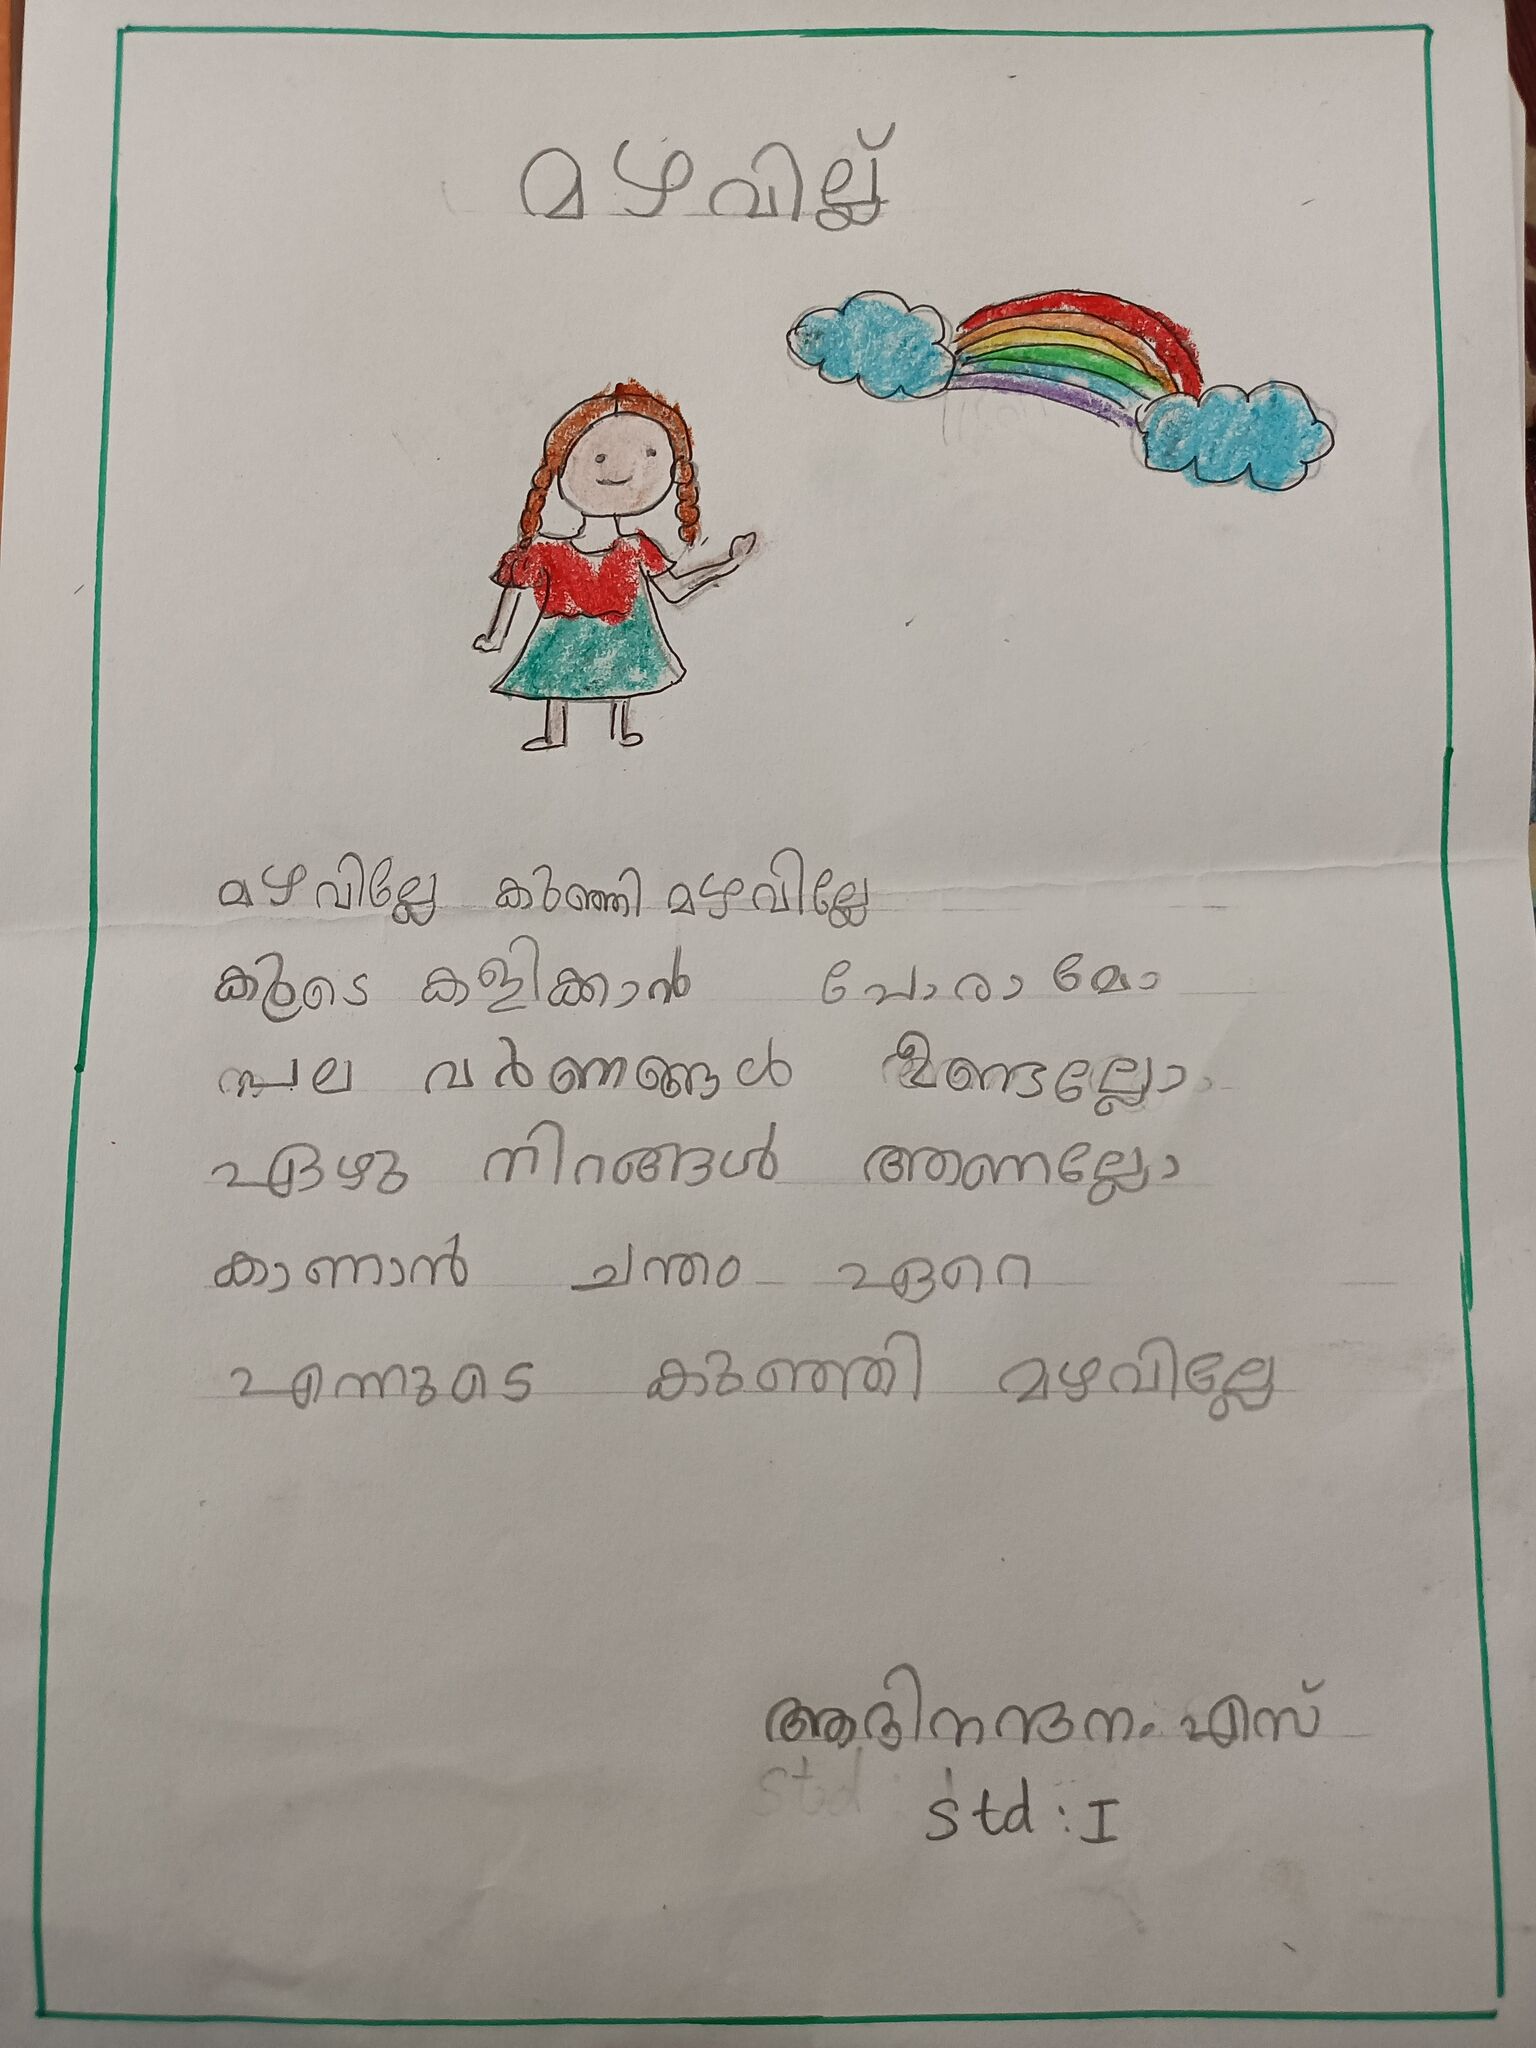 മഴവില്ല്
മഴവില്ലേ കുഞ്ഞി മഴവില്ലേ
കൂടെ കളിക്കാൻ പോരാമോ
പല വർണങ്ങൾ ഉണ്ടെല്ലോ
ഏഴു നിറങ്ങൾ ആണല്ലോ
കാണാൻ ചന്തം ഏറെ
എന്നുടെ കുഞ്ഞി മഴവില്ലേ
എസ്
std : I